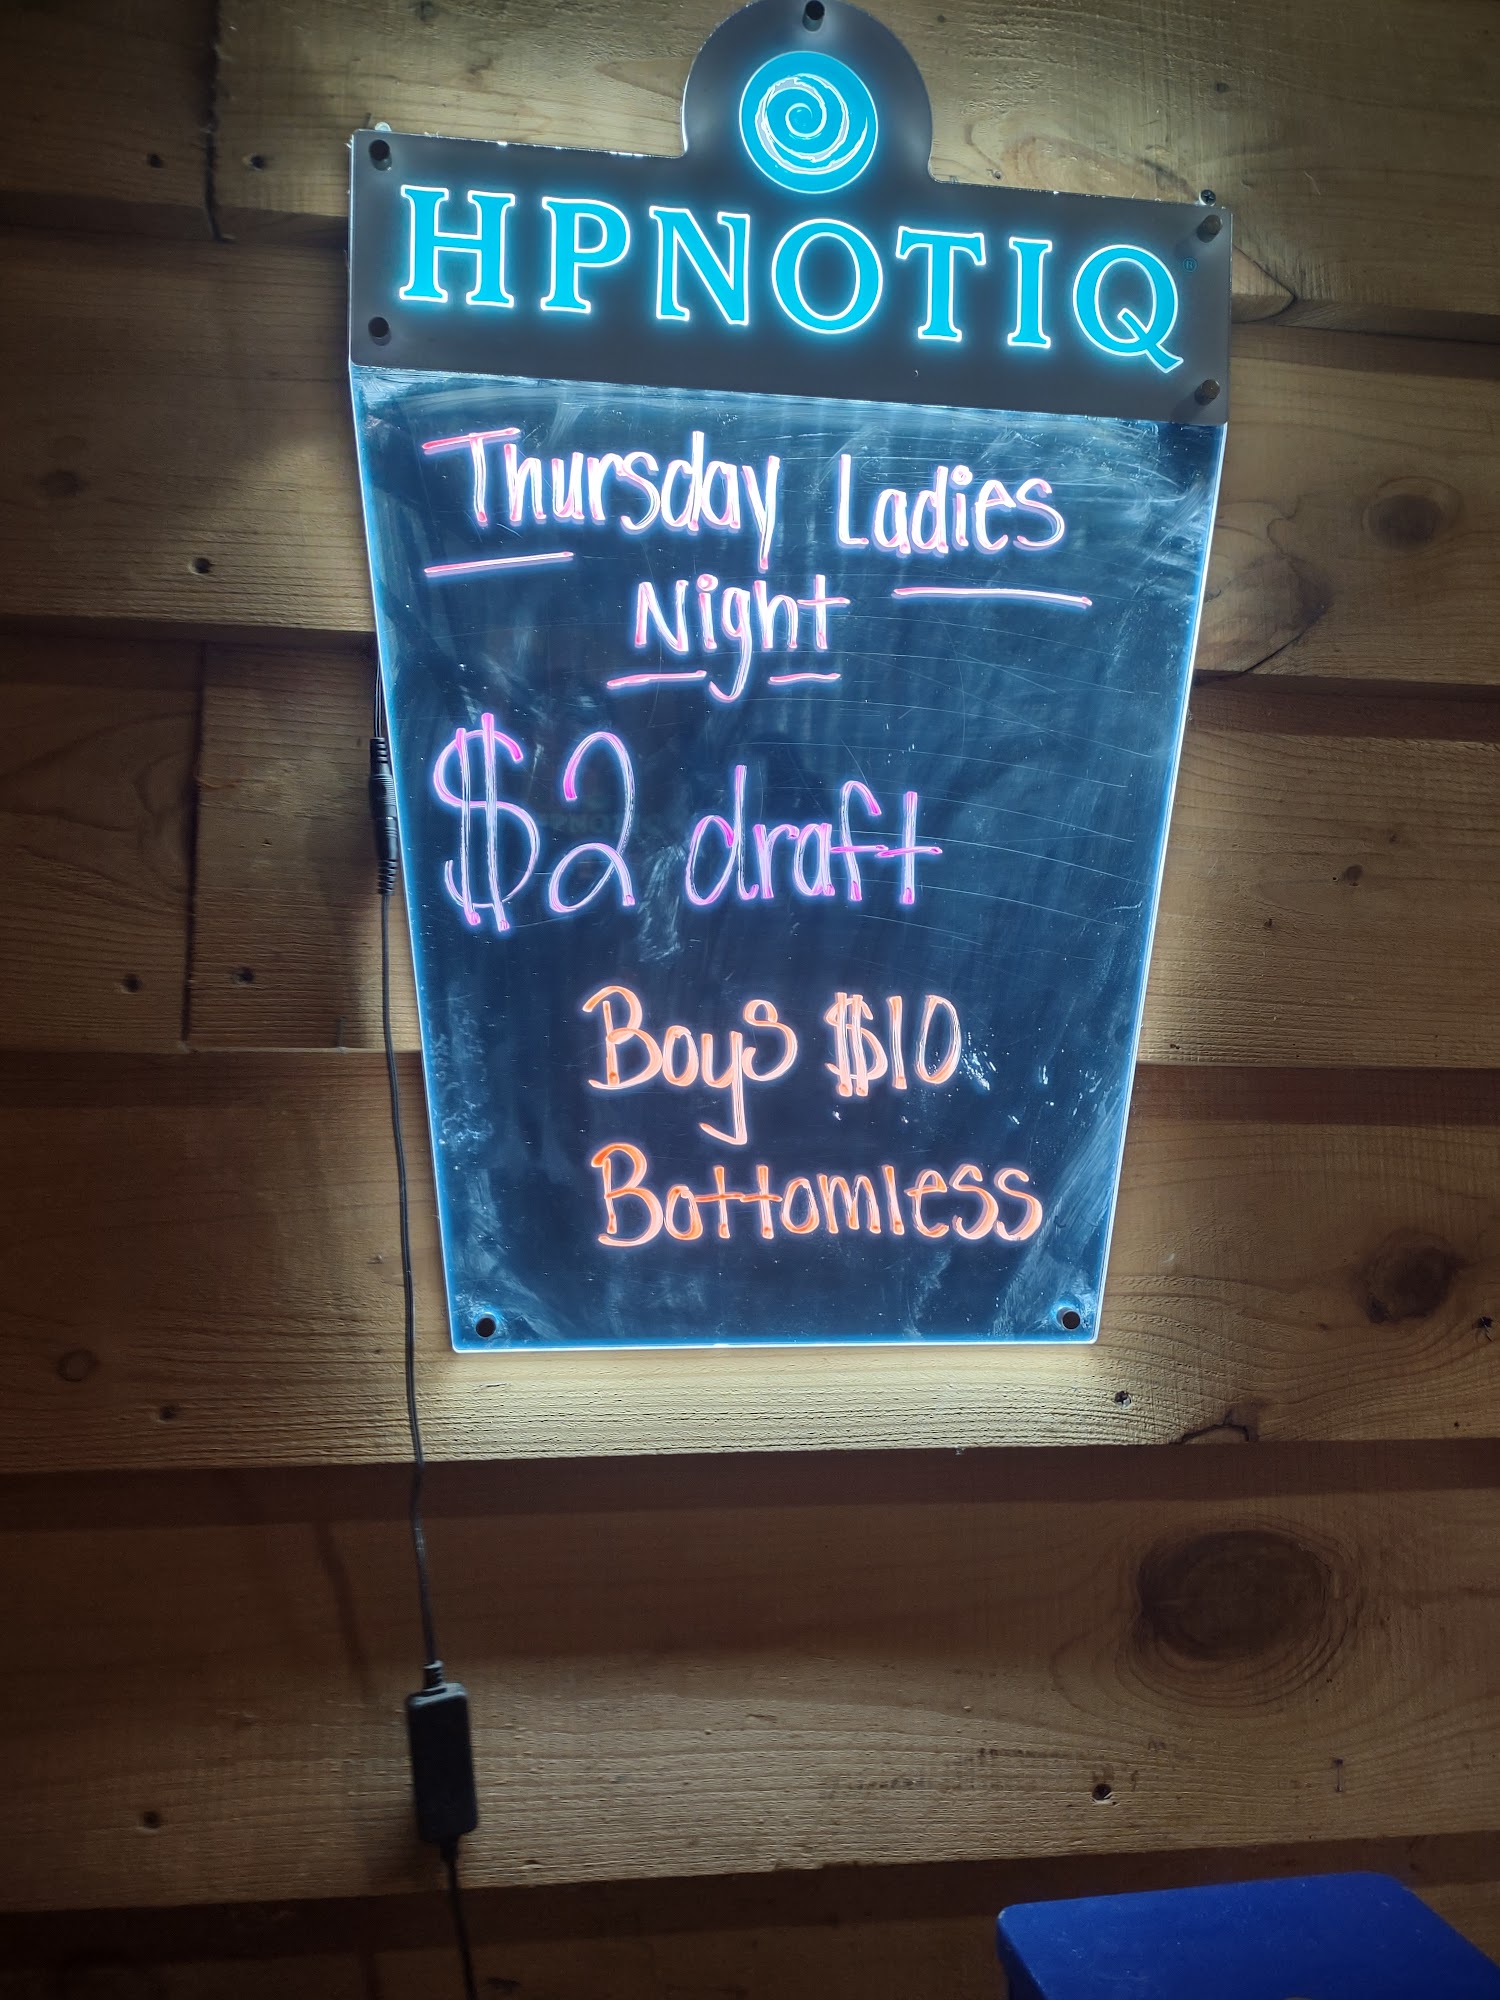 HPNOTIQ®
Thursday Ladies
Night
$2 draft
Boys $10
Bottomless